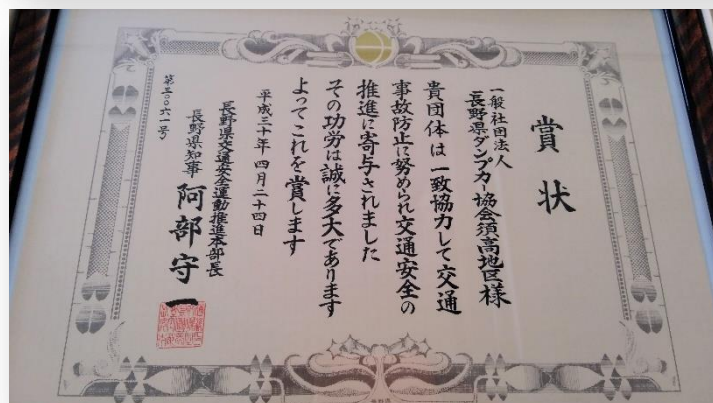 賞状
一般社団法人
長野県ダンプカー協会須高地区様
貴団体は一致協力して交通
事故防止に努められ交通安全の
推進に寄与されました
その功労は誠に多大であります
よってこれを賞します
平成三十年四月二十四日
長野県交通安全運動推進本部長
長野県知事 阿部守一
第三〇六一号